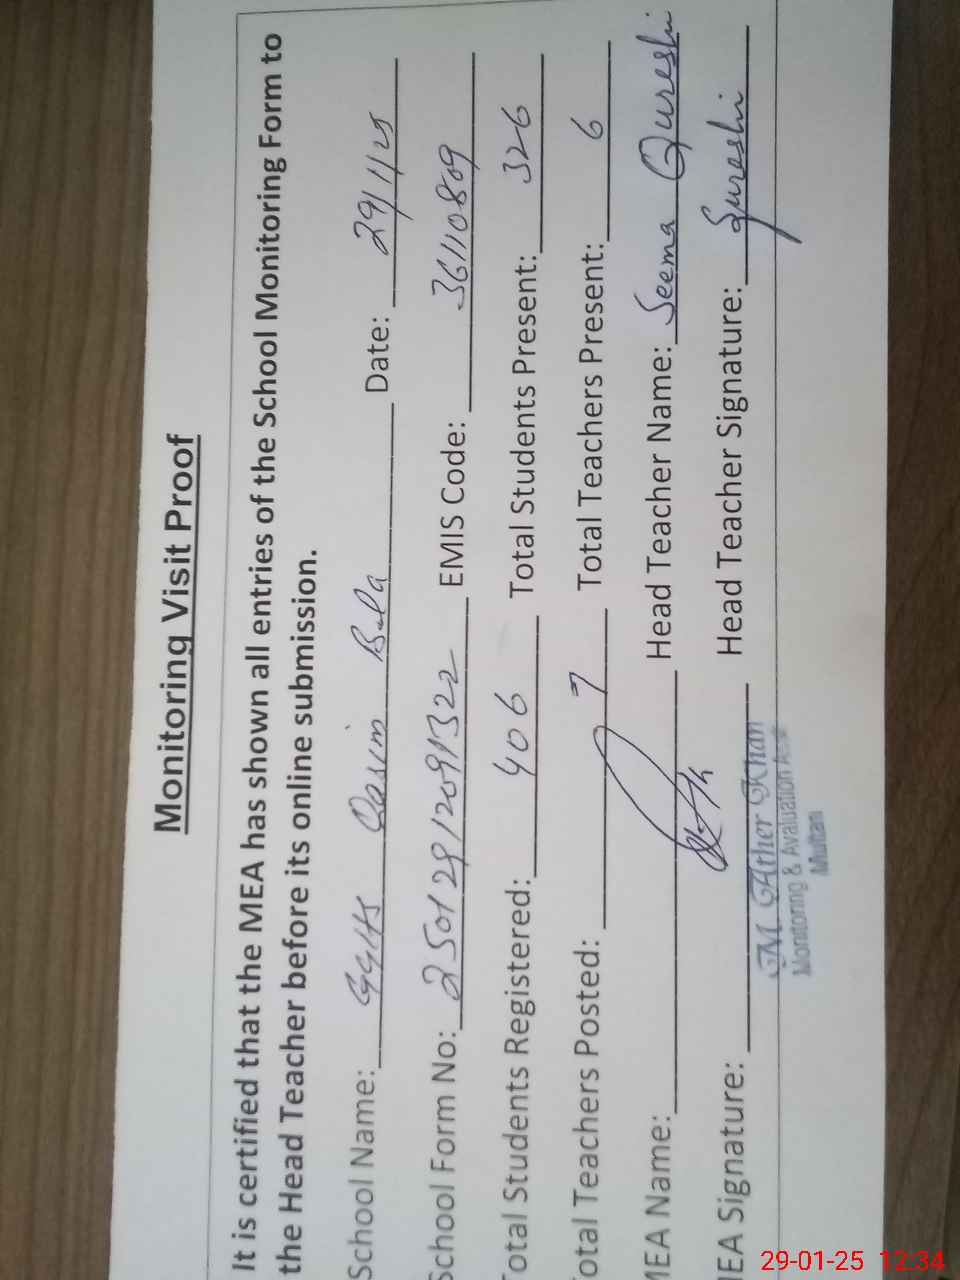 Monitoring Visit Proof
It is certified that the MEA has shown all entries of the School Monitoring Form to
the Head Teacher before its online submission.
School Name: GGHS Qasim Bela Date: 29/1/25
School Form No: 25012912091322 EMIS Code: 36110809
Total Students Registered: 406 Total Students Present: 326
otal Teachers Posted: 7 Total Teachers Present: 6
MEA Name: Head Teacher Name: Seema Qureshi
IEA Signature: Head Teacher Signature: Qureshi
M. Ather Khan
Monitoring & Avaluation Asstt
Multan
29-01-25 12:34